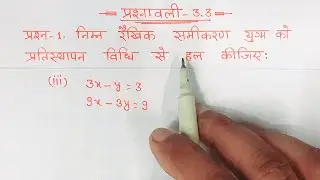 प्रश्नावली-3.3
प्रश्न-1. निम्न रैखिक समीकरण युग्म को
प्रतिस्थापन विधि से हल कीजिए:
(iii) 3x-y=3
9x-3y=9